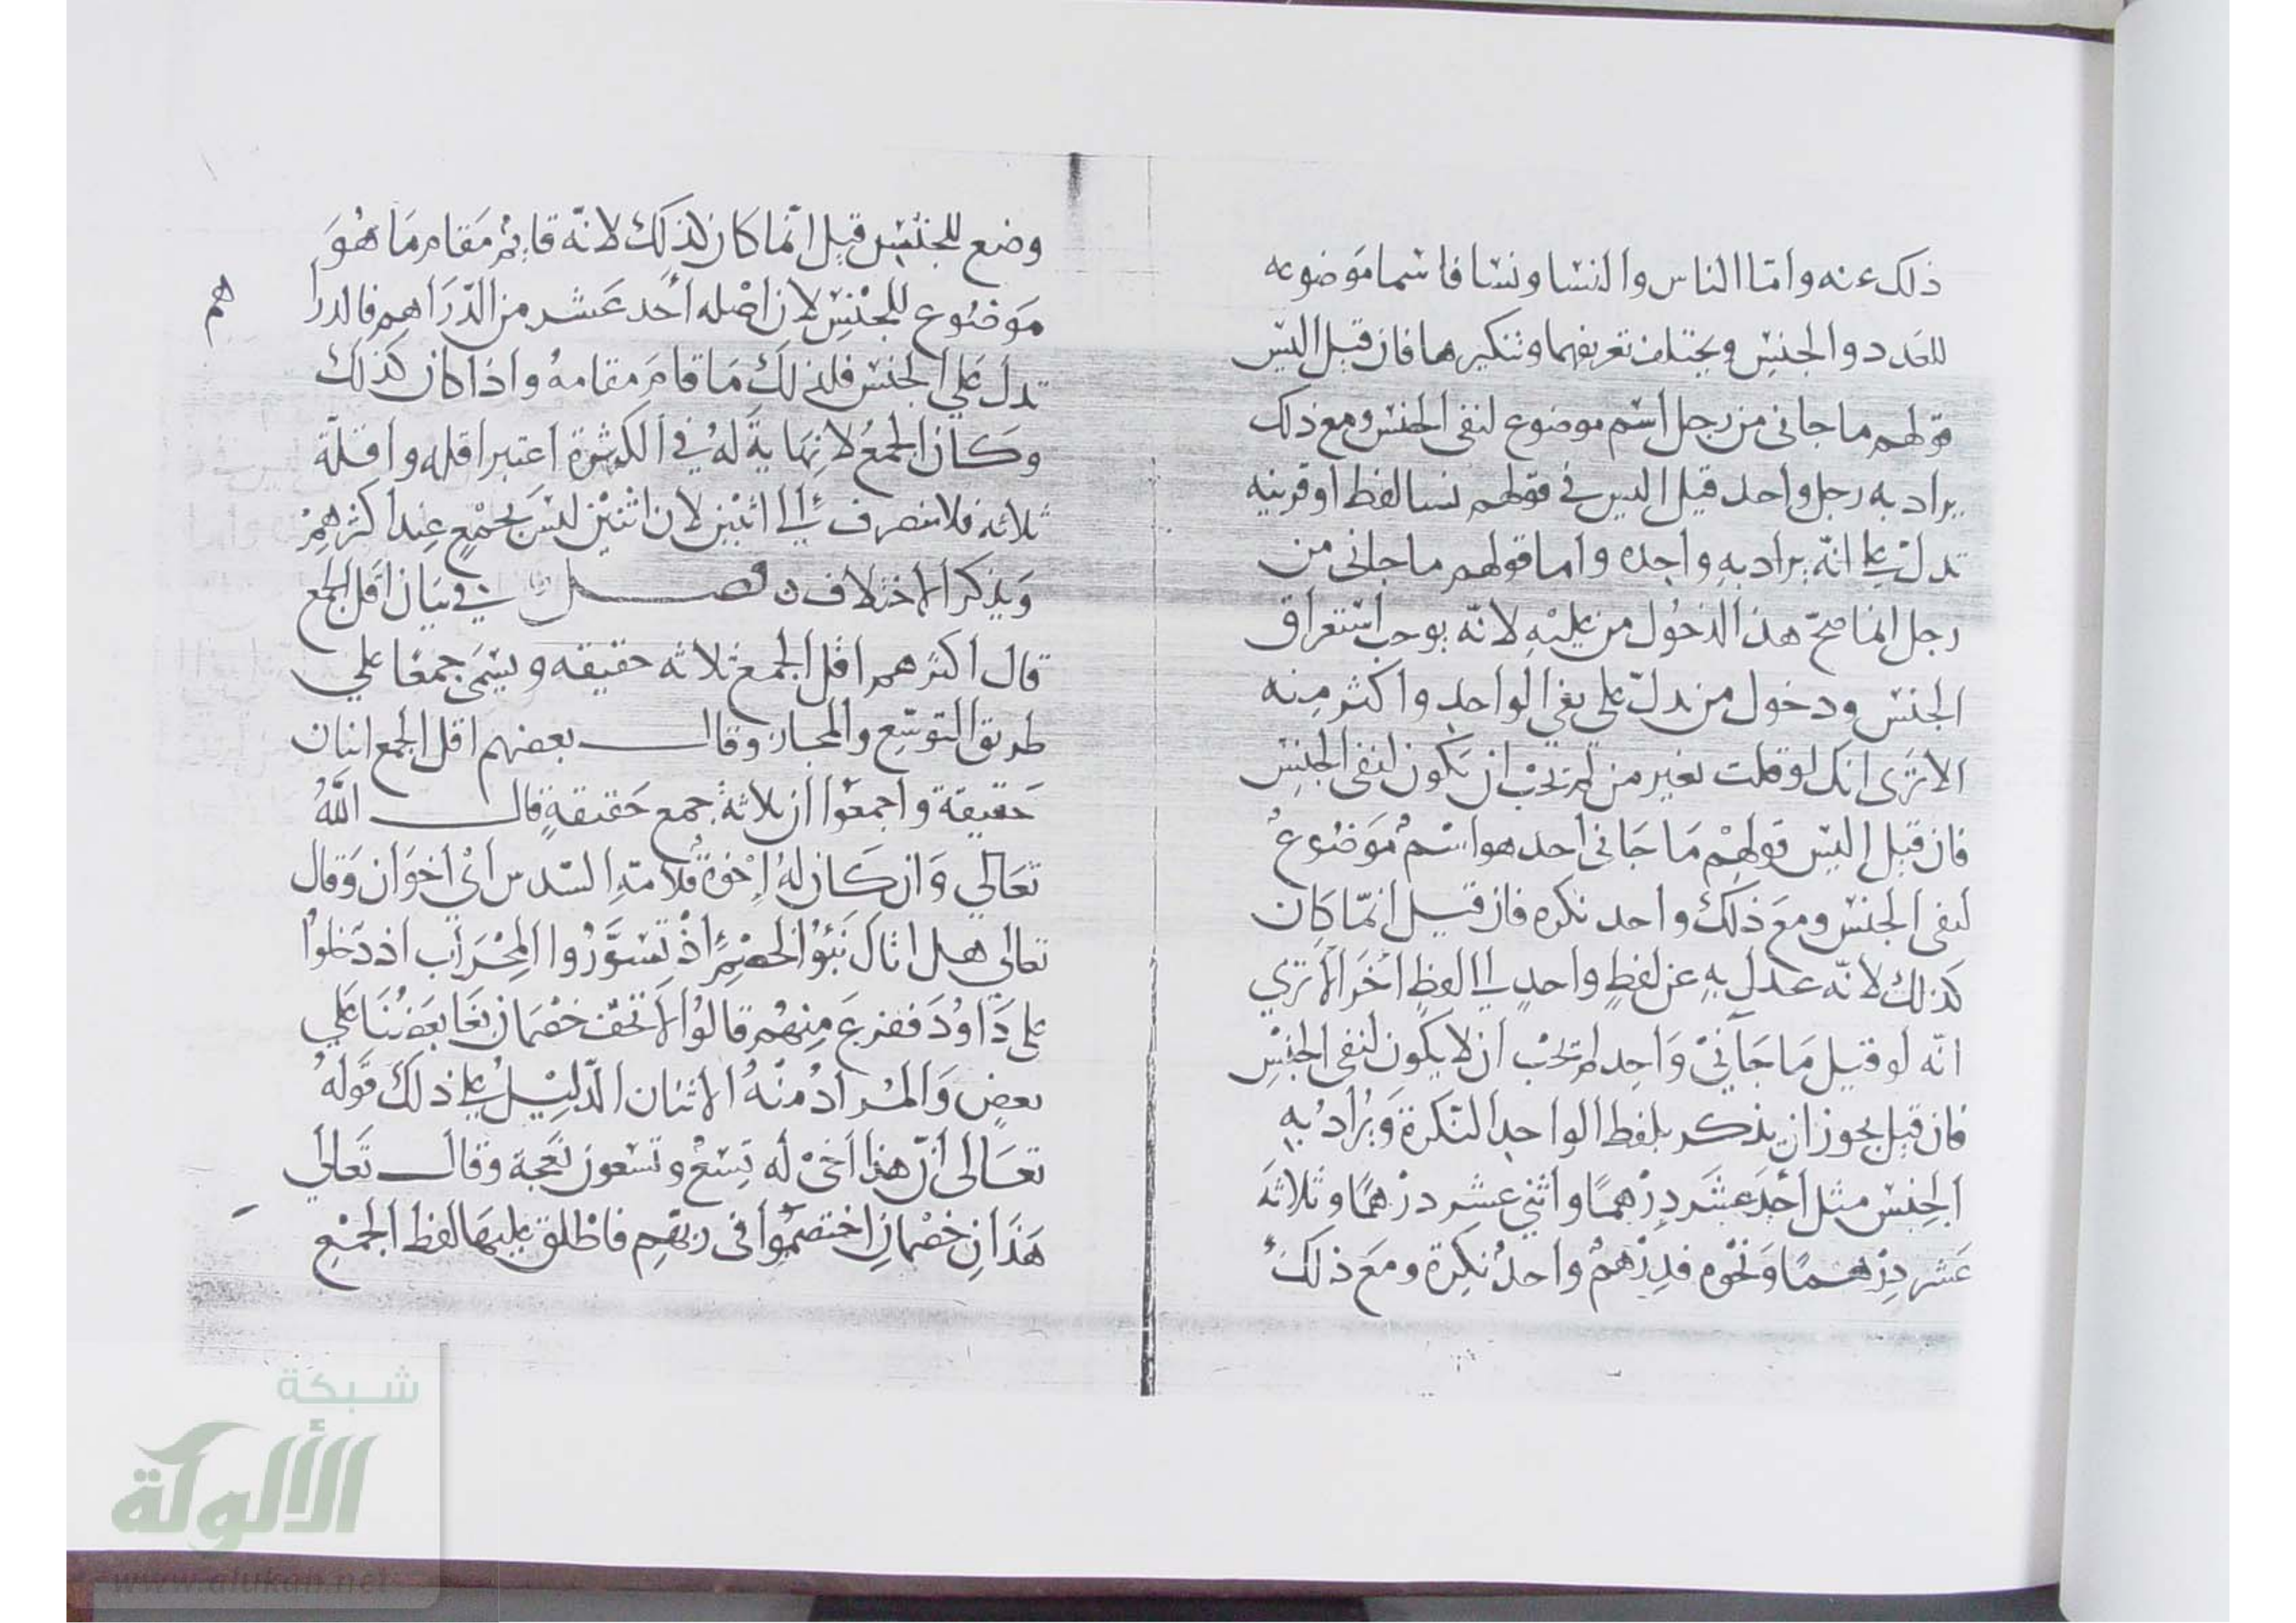 ذلك عنه واما الناس والنسا ونسا فاسما موضوعه
للعدد والجنس ويختلف تعريفهما وتنكيرهما فان قيل اليس
قولهم ما جاني من رجل اسم موضوع لنفي الجنس ومع ذلك
يراد به رجل واحد قيل اليس في قولهم نسا لفظ او قرينه
تدل على انّه يراد به واحده واما قولهم ما جاني من
رجل انما صحّ هذا الدخول من عليه لانّه يوجب استغراق
الجنس ودخول من يدلّ على نفي الواحد واكثر منه
الا ترى انك لو قلت بغير من لم تجب ان يكون لنفي الجنس
فان قيل اليس قولهم ما جاني احد هو اسمٌ موضوعٌ
لنفي الجنس ومع ذلك واحد نكره فان قيل انمّا كان
كذلك لانّه عدل به عن لفظٍ واحدٍ الي لفظٍ اخر الا تري
انّه لو قيل ما جآني واحد لم تجب ان لا يكون لنفي الجنس
فان قيل يجوز ان يذكر بلفظ الواحد النكرة ويُراد به
الجنس مثل احد عشر درهمًا واثني عشر درهمًا وثلاثه
عشر درهمًا ونحوه فدرهمٌ واحدٌ نكرة ومع ذلك
وضع للجنس قيل انما كان لذلك لانّه قايم مقام ما هو
موضوع للجنس لان اصله احد عشر من الدراهم فالدرا
هم
تدل على الجنس فلذلك ما قام مقامه واذا كان كذلك
وكان الجمع لا نهاية له في الكثرة اعتبر اقله واقلّة
ثلاثه فلا ينصرف الي اثنين لان اثنين ليس بجمع عند اكثرهم
ويذكر الاختلاف ه فصل في بيان اقل الجمع
قال اكثرهم اقل الجمع ثلاثه حقيقه ويسمى جمعًا علي
طريق التوسّع والمجاز وقال بعضهم اقل الجمع اثنان
حقيقة واجمعوا ان ثلاثة جمع حقيقةٍ قال اللّٰه
تعالي وان كان له اخوة فلامّه السدس ايْ اخوان وقال
تعالى هل اتاك نبؤا الخصم إذ تسوّروا المحراب اذ دخلوا
على داود ففزع منهم قالوا لا تخف خصمان بغا بعضنا علي
بعض والمراد منه الاثنان الدّليل علي ذلك قوله
تعالى انّ هذا اخي له تسع وتسعون نعجة وقال تعالي
هذان خصمان اختصموا في ربهم فاطلق عليهما لفظ الجمع
شبكة
الألوكة
www.alukah.net